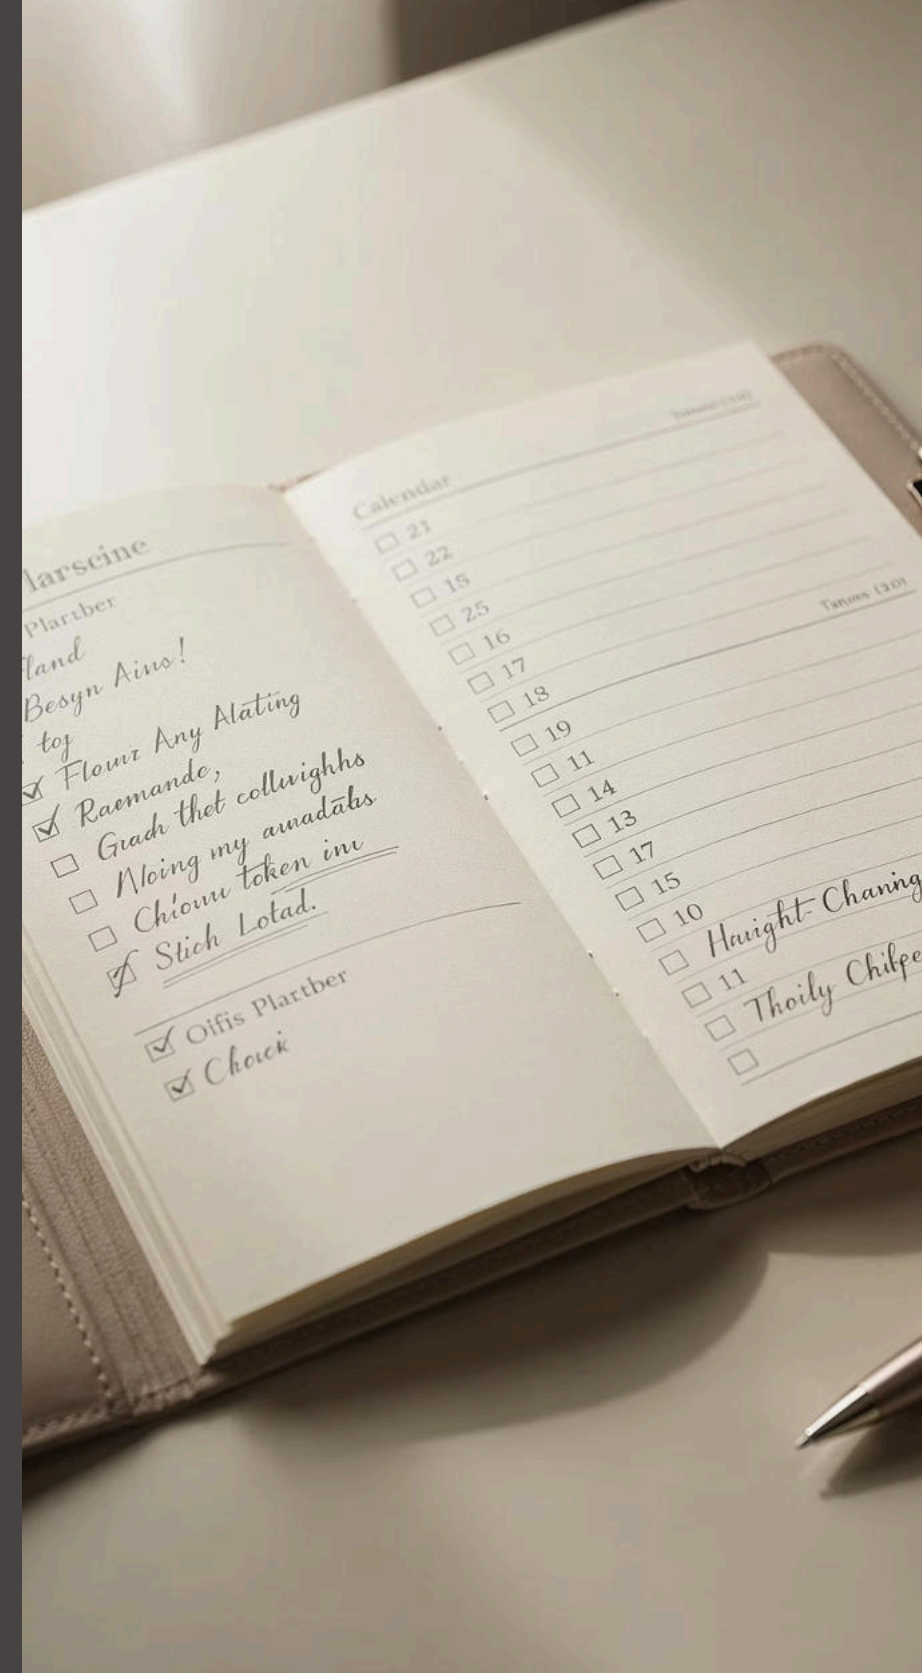 larscine
Plartber
land
Besyn Aino!
toy
Flowr Any Alating
Raemande,
Guach thet colluighhs
Noing my amadats
Chiouu token inv
Stich Lotad.
Oifis Plartber
Chouck
Calendar
21
22
15
25
16
17
18
Tanms (20)
19
11
14
13
17
15
10
Hauight-Chaning
11
Thoily Chilpe